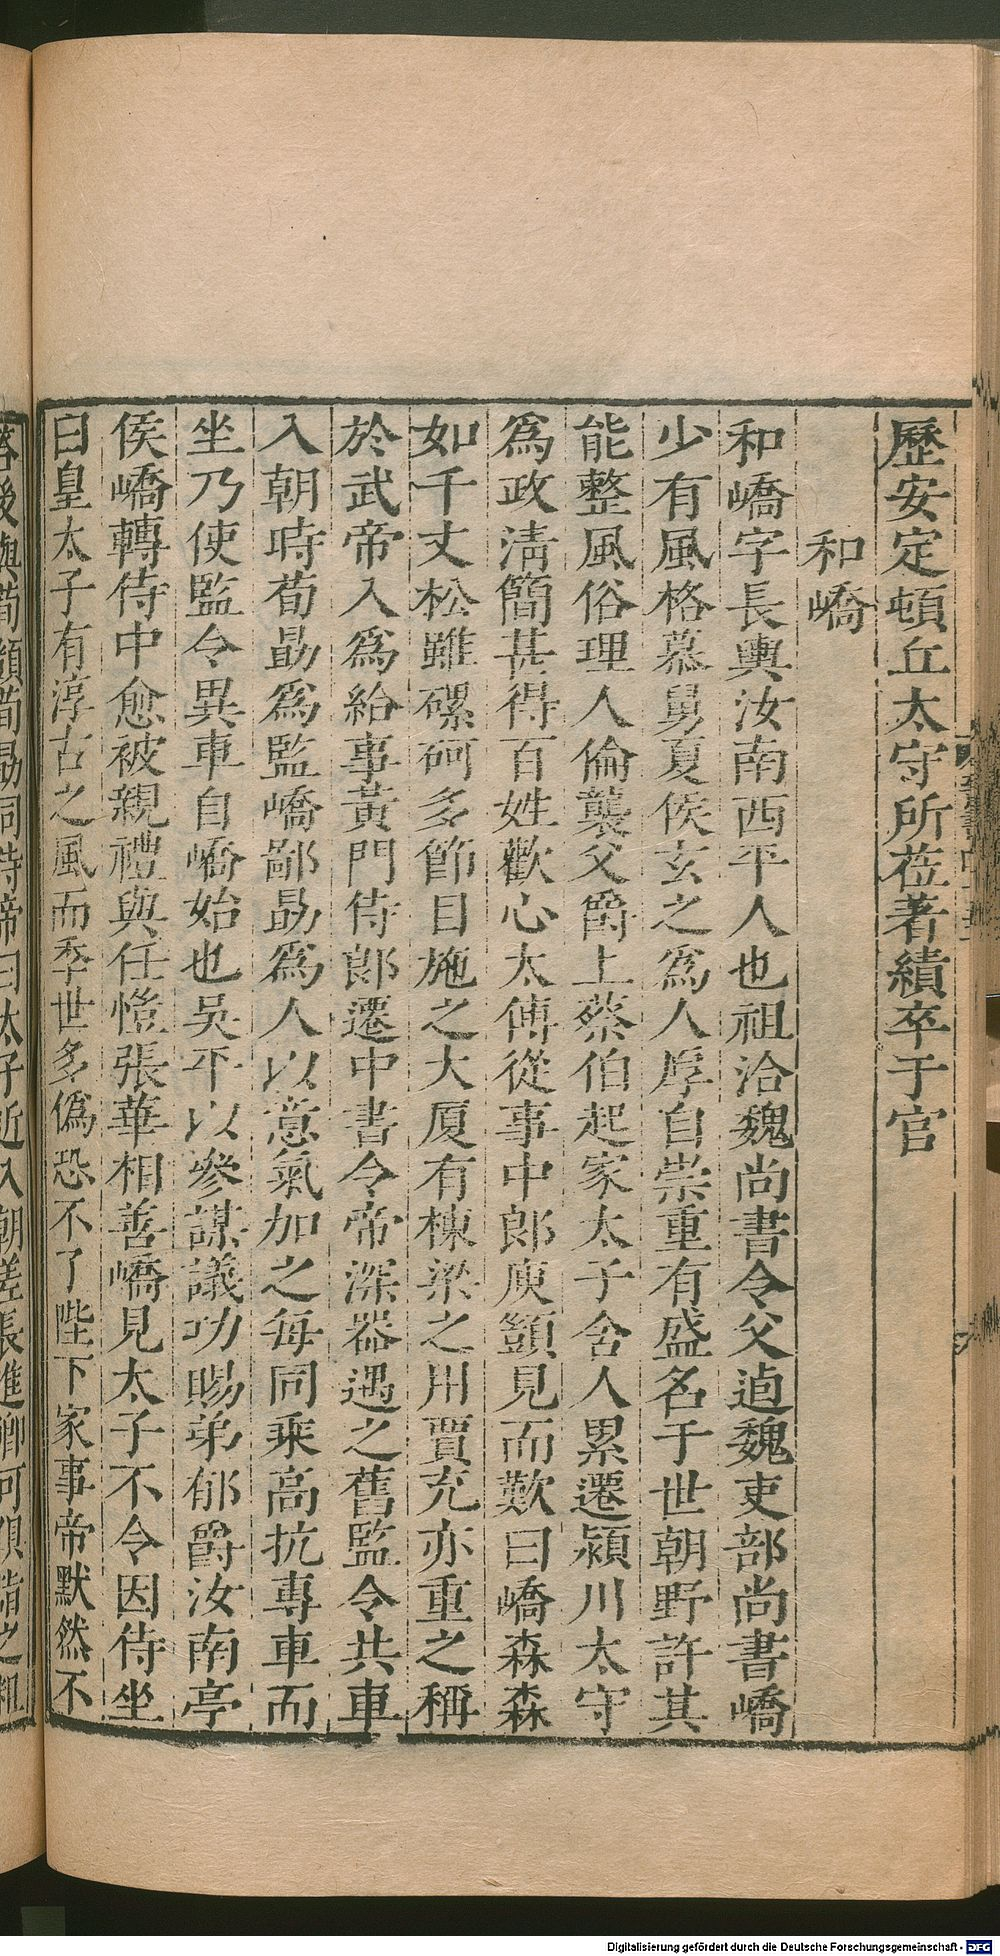 歷安定頓丘太守所莅著績卒于官
和嶠
和嶠字長輿汝南西平人也祖洽魏尚書令父逌魏吏部尚書嶠
少有風格慕舅夏侯玄之爲人厚自崇重有盛名于世朝野許其
能整風俗理人倫襲父爵上蔡伯起家太子舍人累遷潁川太守
爲政清簡甚得百姓歡心太傅從事中郎庾顗見而歎曰嶠森森
如千丈松雖磥砢多節目施之大厦有棟梁之用賈充亦重之稱
於武帝入爲給事黃門侍郎遷中書令帝深器遇之舊監令共車
入朝時荀勗爲監嶠鄙勗爲人以意氣加之每同乘高抗專車而
坐乃使監令異車自嶠始也吳平以參謀議功賜弟郁爵汝南亭
侯嶠轉侍中愈被親禮與任愷張華相善嶠見太子不令因侍坐
曰皇太子有淳古之風而季世多僞恐不了陛下家事帝默然不
後與荀顗荀勗同侍帝曰太子近入朝差長進卿可俱詣之粗
Digitalisierung gefördert durch die Deutsche Forschungsgemeinschaft - DFG